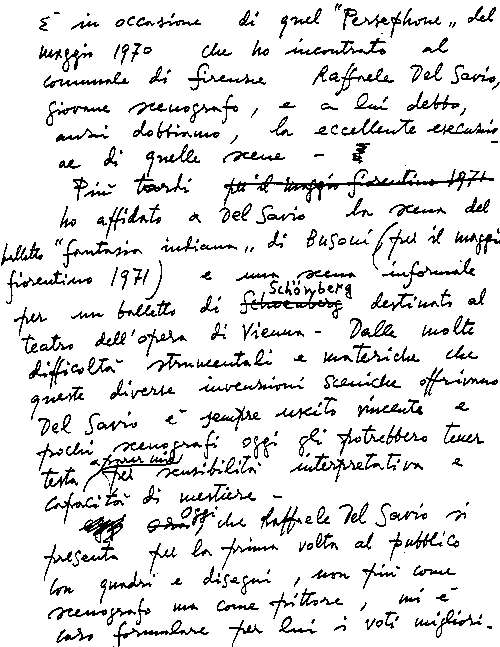 È in occasione di quel "Persephone„ del
maggio 1970 che ho incontrato al
comunale di firenze Raffaele Del Savio,
giovane scenografo, e a lui debbo,
anzi dobbiamo, la eccellente esecuzio
ne di quelle scene -
Più tardi per il maggio fiorentino 1971
ho affidato a Del Savio la scena del
balletto "fantasia indiana„ di Busoni (per il maggio
fiorentino 1971) e una scena informale
Schömberg
per un balletto di Schoenberg destinato al
teatro dell'opera di Vienna - Dalle molte
difficoltà strumentali e materiche che
queste diverse invenzioni sceniche offrivano
Del Savio è sempre uscito vincente e
pochi scenografi oggi gli potrebbero tener
a parer mio
testa per sensibilità interpretativa e
capacità di mestiere -
oggi
, che Raffaele Del Savio si
presenta per la prima volta al pubblico
con quadri e disegni, non più come
scenografo ma come pittore, mi è
caro formulare per lui i voti migliori -